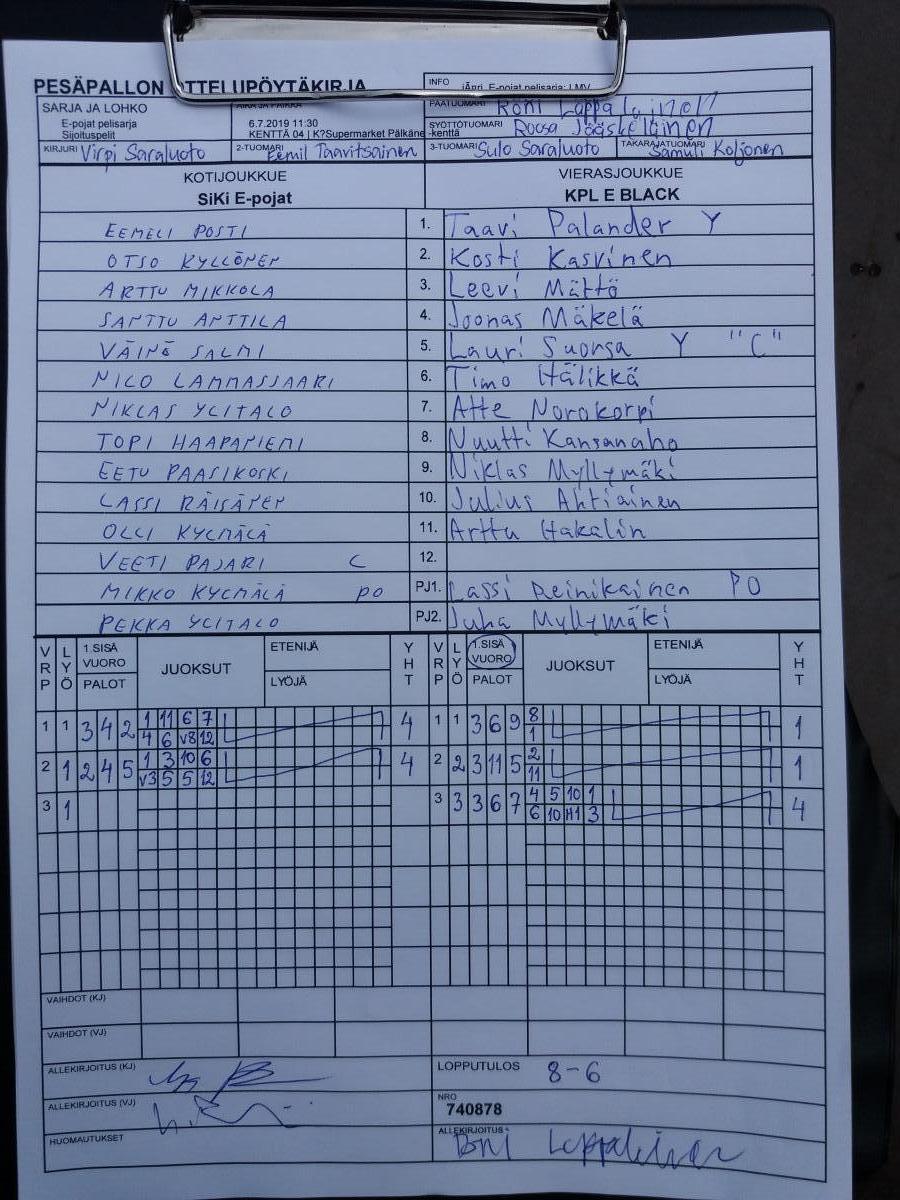 PESÄPALLON OTTELUPÖYTÄKIRJA
INFO
SARJA JA LOHKO
E-pojat pelisarja
Sijoituspelit
6.7.2019 11:30
KENTTÄ 04 | K?Supermarket Pälkäne -kenttä
PÄÄTUOMARI Roni Lappalainen
SYÖTTÖTUOMARI Roosa Jääskeläinen
KIRJURI Virpi Saraluoto
2-TUOMARI Eemil Taavitsainen
3-TUOMARI Sulo Saraluoto
TAKARAJATUOMARI Samuli Koljonen
KOTIJOUKKUE VIERASJOUKKUE
SiKi E-pojat KPL E BLACK
EEMELI POSTI 1. Taavi Palander Y
OTSO KYLLÖNEN 2. Kosti Kasvinen
ARTTU MIKKOLA 3. Leevi Mättö
SANTTU ANTTILA 4. Joonas Mäkelä
VÄINÖ SALMI 5. Lauri Suonsa Y "C"
NICO LAMMASSAARI 6. Timo Hälikkä
NIKLAS YLITALO 7. Atte Norokorpi
TOPI HAAPANIEMI 8. Nuutti Kansanaho
EETU PAASIKOSKI 9. Niklas Myllymäki
LASSI RÄISÄNEN 10. Julius Ahtiainen
OLLI KYLMÄLÄ 11. Arttu Hakalin
VEETI PAJARI C 12.
MIKKO KYLMÄLÄ PO PJ1. Lassi Reinikainen PO
PEKKA YLITALO PJ2. Juha Myllymäki
VRP LYÖ 1.SISÄ VUORO PALOT JUOKSUT ETENIJÄ LYÖJÄ YHT VRP LYÖ 1.SISÄ VUORO PALOT JUOKSUT ETENIJÄ LYÖJÄ YHT
1 1 3 4 2 1 11 6 7 4 1 1 3 6 9 8 1
4 6 V8 12 1
2 1 2 4 5 1 3 10 6 4 2 2 3 11 5 2 1
V3 5 5 12 11
3 1 3 3 3 6 7 4 5 10 1 4
6 10 H1 3
VAIHDOT (KJ)
VAIHDOT (VJ)
ALLEKIRJOITUS (KJ)
LOPPUTULOS 8-6
ALLEKIRJOITUS (VJ)
NRO
740878
HUOMAUTUKSET
ALLEKIRJOITUS
Roni Lappalainen